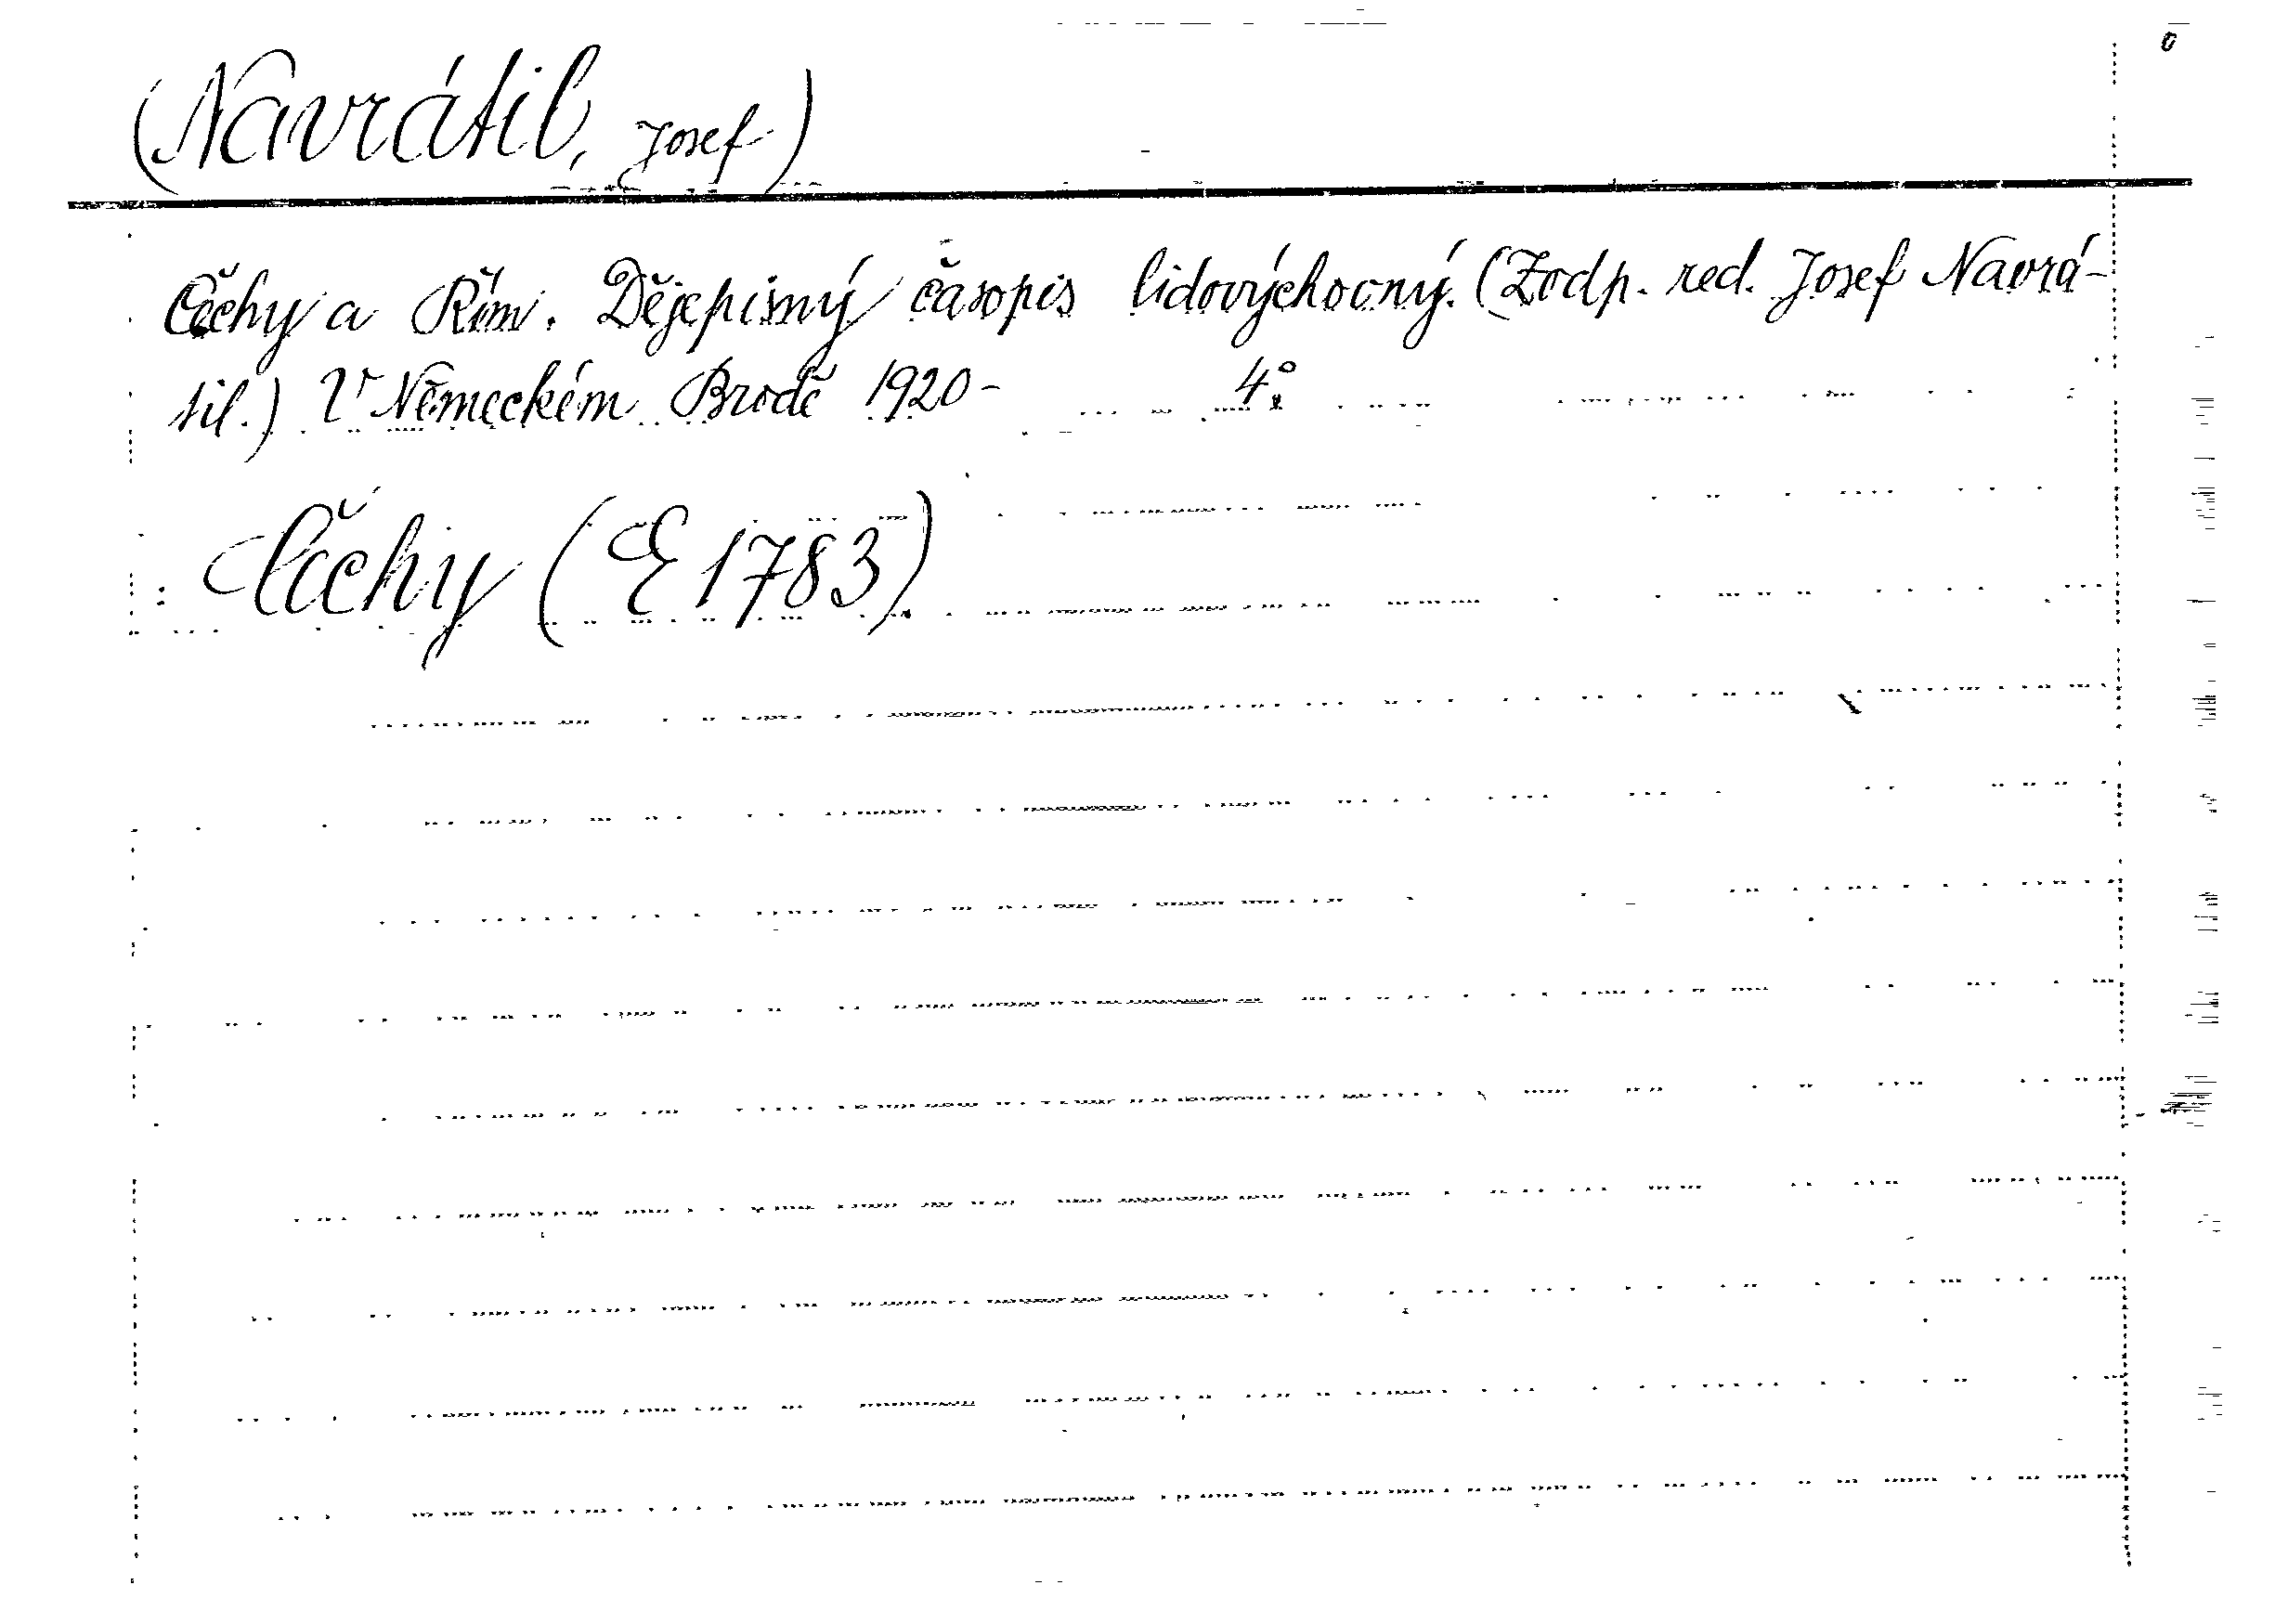 (Navrátil, Josef)
Čechy a Řím. Dějepisný časopis lidovýchovný. (Zodp. red. Josef Navrá-
til.) V Německém Brodě 1920- 4°
Čechy (E 1783)